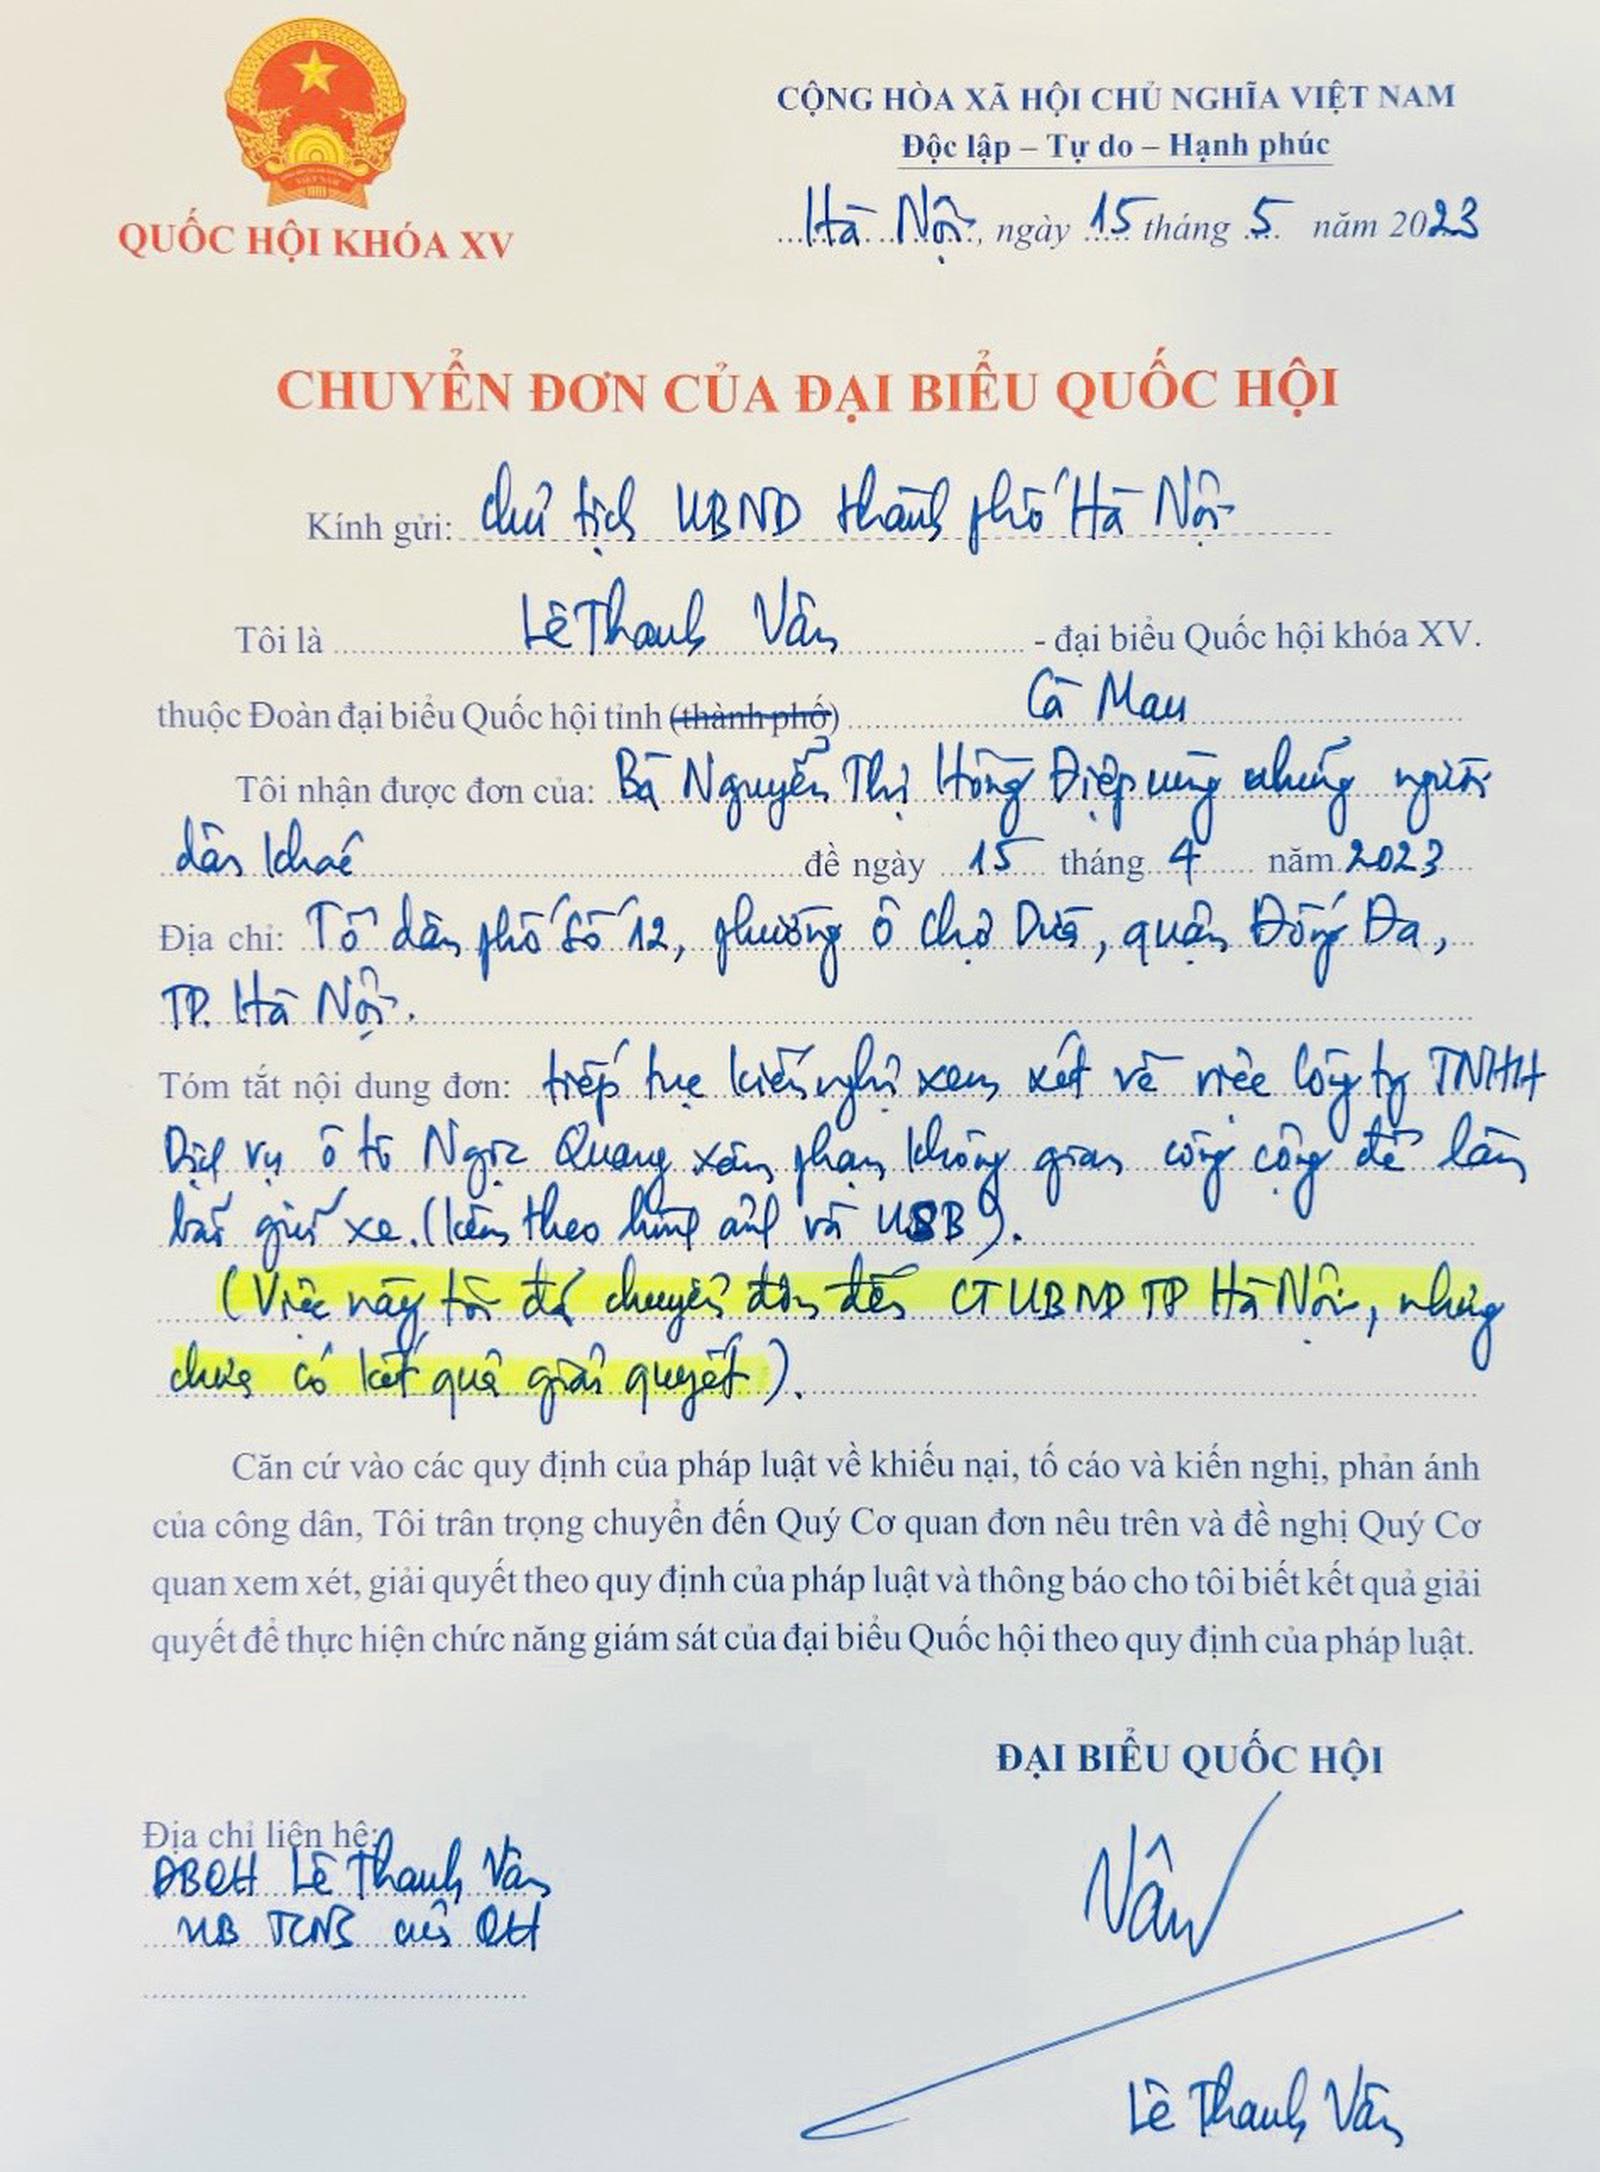 CỘNG HÒA XÃ HỘI CHỦ NGHĨA VIỆT NAM
Độc lập – Tự do – Hạnh phúc
QUỐC HỘI KHÓA XV
Hà Nội, ngày 15 tháng 5 năm 2023
CHUYỂN ĐƠN CỦA ĐẠI BIỂU QUỐC HỘI
Kính gửi: Chủ tịch UBND thành phố Hà Nội
Tôi là Lê Thanh Vân - đại biểu Quốc hội khóa XV.
thuộc Đoàn đại biểu Quốc hội tỉnh (thành phố) Cà Mau
Tôi nhận được đơn của: Bà Nguyễn Thị Hồng Điệp cùng những người
dân khác đề ngày 15 tháng 4 năm 2023
Địa chỉ: Tổ dân phố số 12, phường Ô Chợ Dừa, quận Đống Đa,
TP. Hà Nội.
Tóm tắt nội dung đơn: tiếp tục kiến nghị xem xét về việc Công ty TNHH
Dịch vụ ô tô Ngọc Quang xâm phạm không gian công cộng để làm
bãi giữ xe. (kèm theo hình ảnh và USB).
(Việc này tôi đã chuyển đơn đến CT UBND TP Hà Nội, nhưng
chưa có kết quả giải quyết).
Căn cứ vào các quy định của pháp luật về khiếu nại, tố cáo và kiến nghị, phản ánh
của công dân, Tôi trân trọng chuyển đến Quý Cơ quan đơn nêu trên và đề nghị Quý Cơ
quan xem xét, giải quyết theo quy định của pháp luật và thông báo cho tôi biết kết quả giải
quyết để thực hiện chức năng giám sát của đại biểu Quốc hội theo quy định của pháp luật.
ĐẠI BIỂU QUỐC HỘI
Địa chỉ liên hệ:
ĐBQH Lê Thanh Vân
UB TCNS của QH
Vân
Lê Thanh Vân